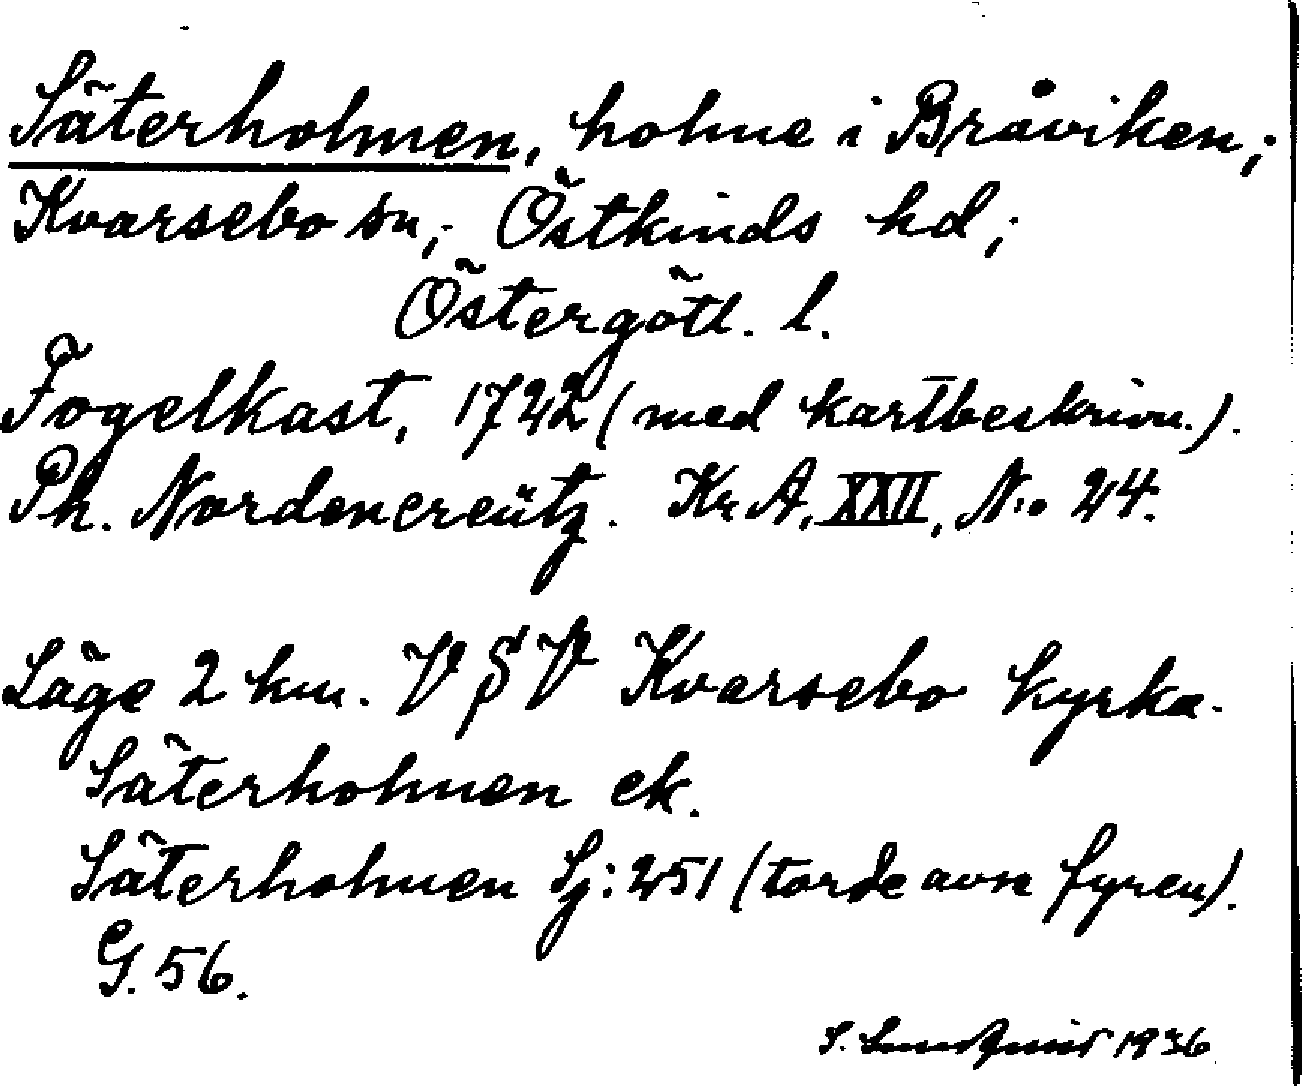 Säterholmen, holme i Bråviken;
Kvarsebo sn; Östkinds hd;
Östergötl. l.
Fogelkast, 1722 (med kartbeskrivn.).
Ph. Nordencreütz. Kr. A. XXII, N:o 24.
Läge 2 km. V S V Kvarsebo kyrka.
Säterholmen ek.
Säterholmen Sj: 251 (torde avse fyren).
G. 56.
S. 1936